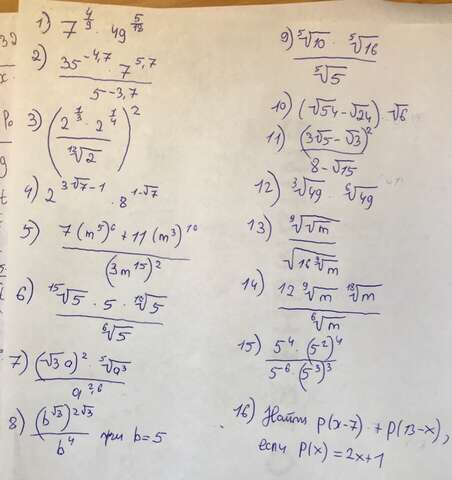 1) 7^(4/9) · 49^(5/18)
2) (35^(-4,7) · 7^(5,7)) / 5^(-3,7)
3) ((2^(1/3) · 2^(1/4)) / ¹²√2)^2
4) 2^(3√7-1) · 8^(1-√7)
5) (7(m^5)^6 + 11(m^3)^10) / (3m^15)^2
6) (¹⁵√5 · 5 · ¹⁰√5) / ⁶√5
7) ((√3a)^2 · ⁵√a^3) / a^(2,6)
8) (b^√3)^(2√3) / b^4 при b=5
9) (⁵√10 · ⁵√16) / ⁵√5
10) (√54-√24) · √6
11) (3√5-√3)^2 / (8-√15)
12) ³√49 · ⁶√49
13) ⁹√√m / √16³√m
14) (12 ⁹√m ¹⁸√m) / ⁶√m
15) (5^4 · (5^2)^4) / (5^(-6) (5^3)^3)
16) Найти p(x-7) + p(13-x),
если p(x)=2x+1